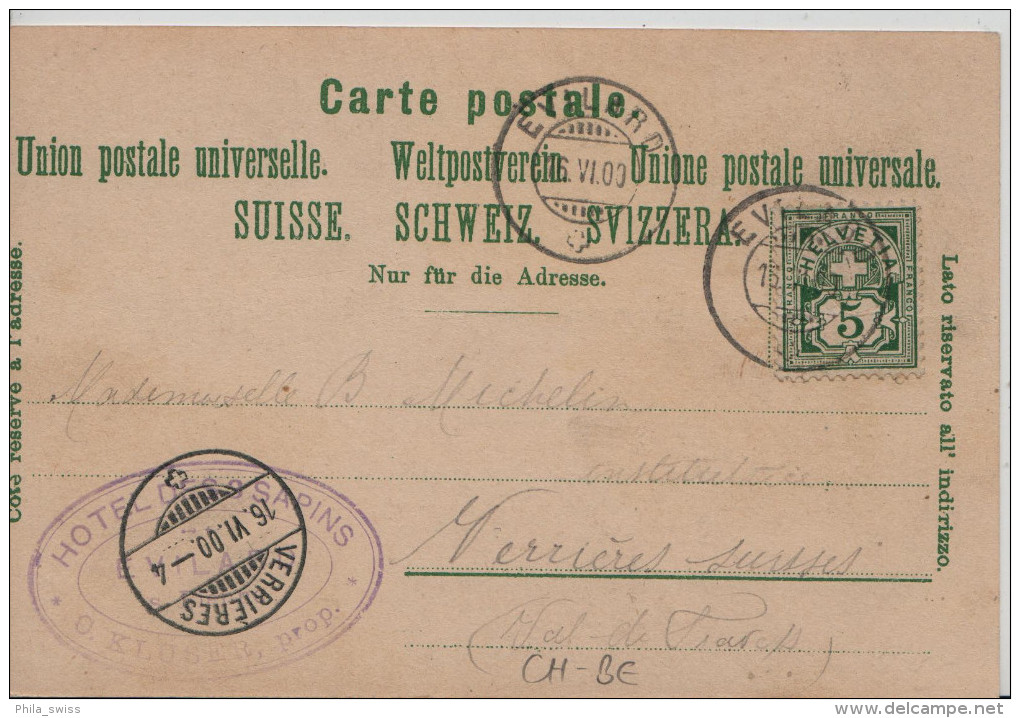 Carte postale.
Union postale universelle. Weltpostverein. Unione postale universale.
SUISSE. SCHWEIZ. SVIZZERA.
Nur für die Adresse.
Côté réservé à l'adresse.
Lato riservato all' indirizzo.
EVILARD
16.VI.00
EVILARD
FRANCO
HELVETIA
FRANCO
FRANCO
5
Mademoiselle B Michelin
institutrice
Verrières suisses
(Val-de-Travers)
CH-BE
HOTEL DES SAPINS
EVILARD
* O. KLUSER, prop. *
16.VI.00—4
VERRIÈRES
Phila_swiss
delcampe.net